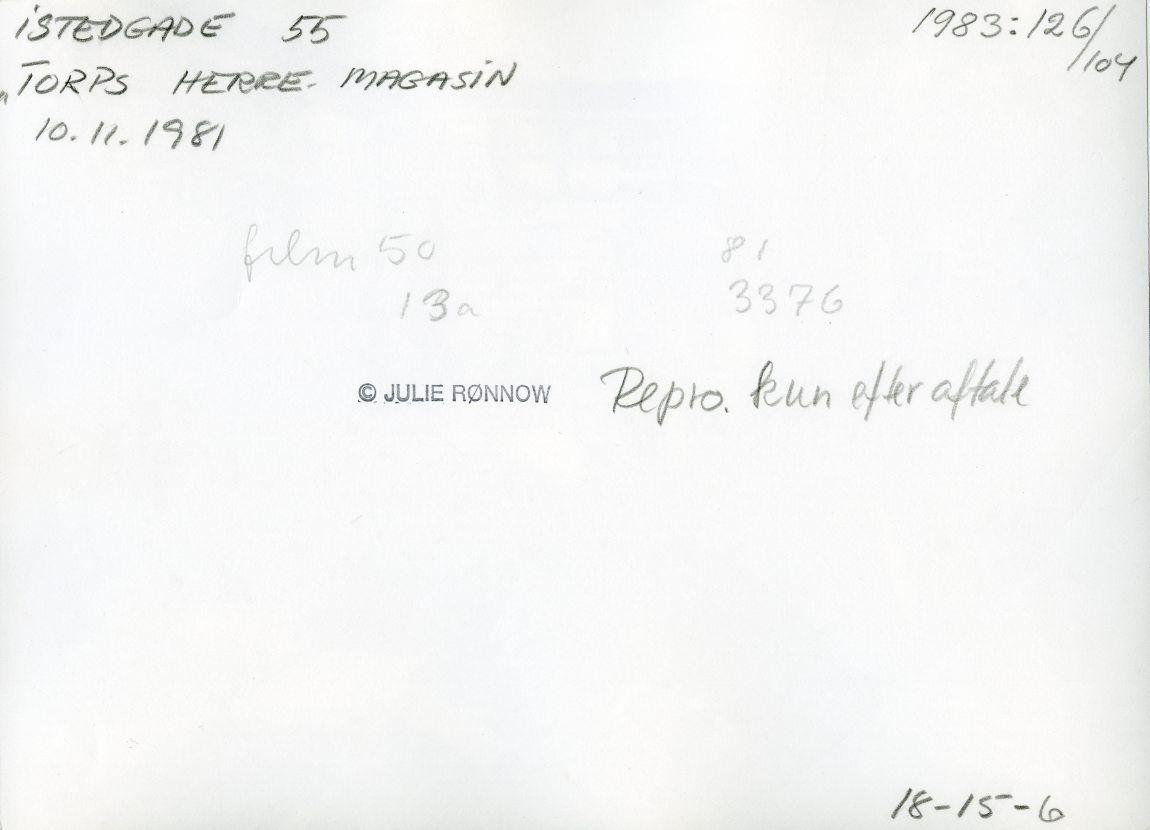 ISTEDGADE 55
1983:126/104
"TORPS HERRE-MAGASIN
10.11.1981
film 50
81
13a
3376
© JULIE RØNNOW
Repro. kun efter aftale
18-15-6